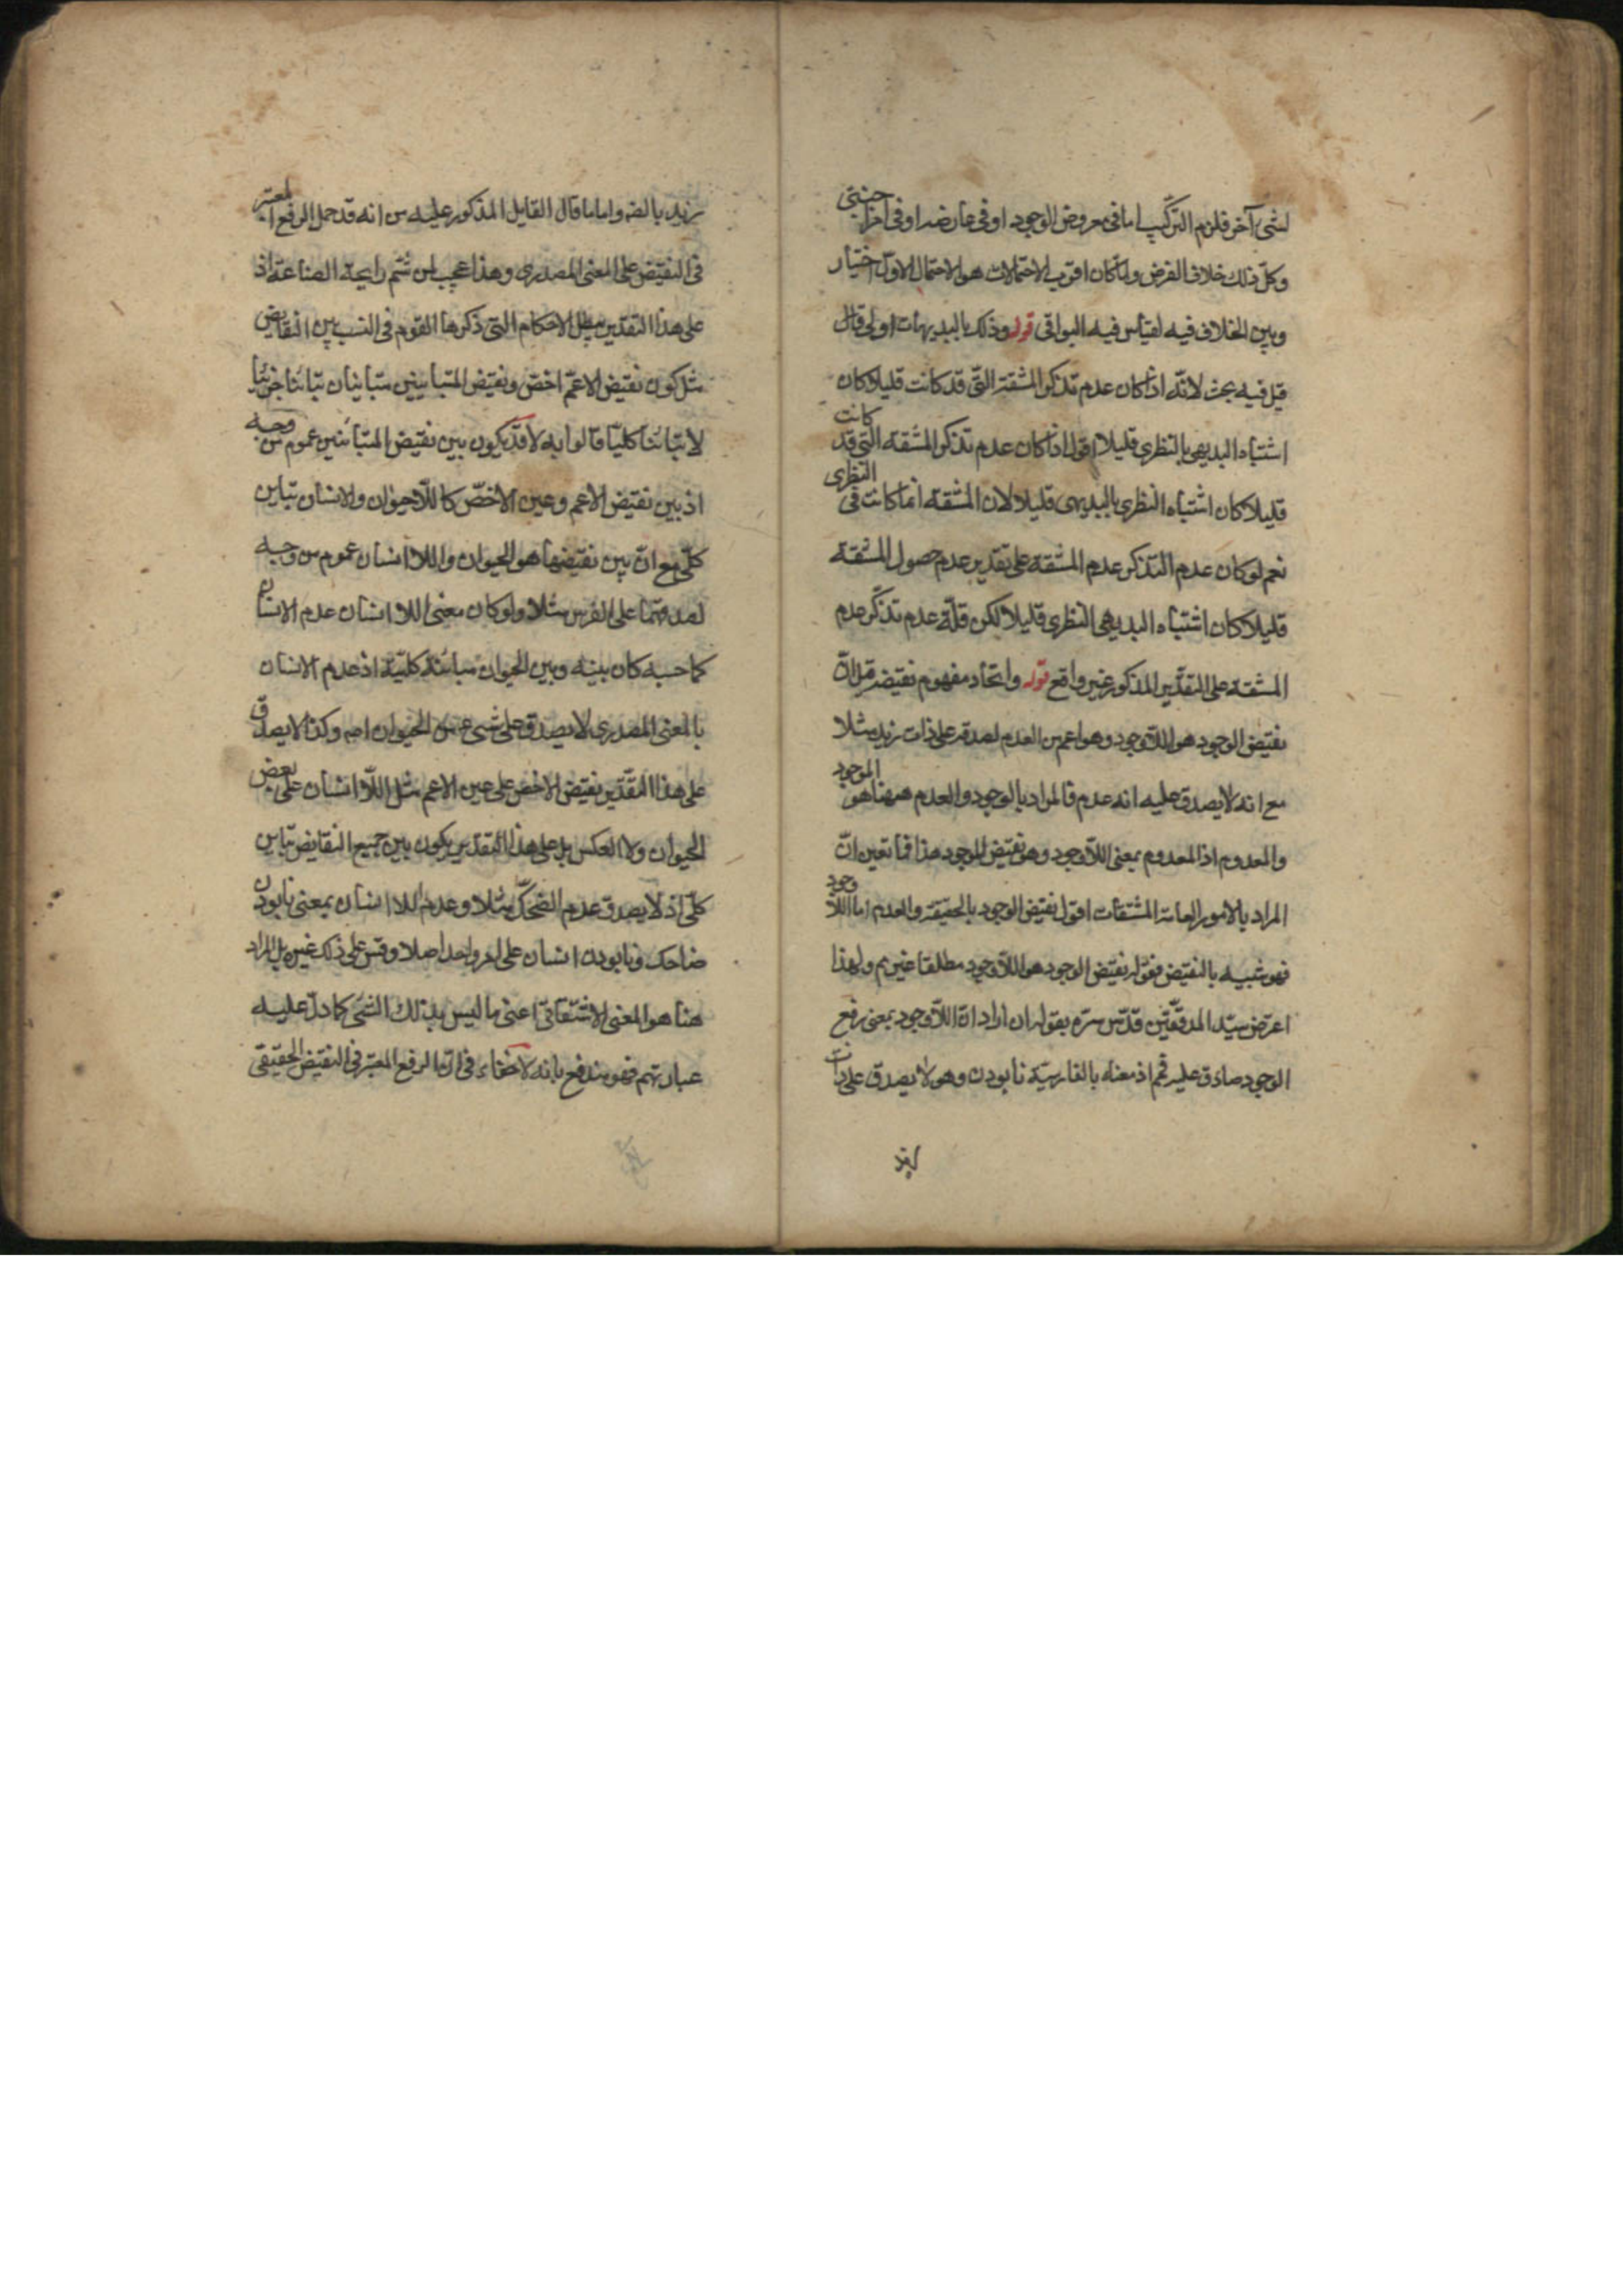 لشئ آخر فلزم التركّب اما فى معروض الوجود او فى عارضه او فى اجزا
وكلّ ذلك خلاف الفرض ولمّا كان اقرب الاحتمالات هو الاحتمال الاوّل اختيار
وبين الخلاف فيه ليقاس فيه البواقى قوله وذلك بالبديهيات اولى قال
قيل فيه بحث لانّه اذا كان عدم تذكر المشقة التّى قد كانت قليلا كان
اشتباه البديهى بالنظرى قليلا اقول اذا كان عدم تذكر المشقة التى قد كانت
قليلا كان اشتباه النظرى بالبديهى قليلا لان المشقة انما كانت فى النظرى
نعم لو كان عدم التذكر عدم المشقة على تقدير عدم حصول المشقة
قليلا كان اشتباه البديهى النظرى قليلا لكن قلّة عدم تذكّر عدم
المشقة على التقدير المذكور غير واقع قوله واتحاد مفهوم نقيضه قيل انّ
نقيض الوجود هو اللاّوجود وهو اعم من العدم لصدقه على ذات زيد مثلا
مع انه لا يصدق عليه انه عدم فالمراد بالوجود والعدم ههنا هو الموجود
والمعدوم اذ المعدوم بمعنى اللاّوجود وهو نقيض الموجود هذا فما تعين انّ
المراد بالامور العامة المشتقات اقول نقيض الوجود بالحقيقة والعدم اما اللاّ وجود
فهو شبيه بالنقيض فقوله نقيض الوجود هو اللاّوجود مطلقا غير م ولهذا
اعترض سيّد المدققين قدّس سرّه بقوله ان اراد انّ اللاّوجود بمعنى رفع
الوجود صادق عليه فم اذ معناه بالفارسيّة نابودن وهو لا يصدق على ذات
زيد
زيد بالضه واما ما قال القايل المذكور عليه من انه قد حمل الرفع المعتبر
فى النقيض على المعنى المصدرى وهذا عجب لمن شمّ رايحة الصناعة اذ
على هذا التقدير يبطل الاحكام التى ذكرها القوم فى النسب بين النقايض
مثل كون نقيض الاعمّ اخصّ ونقيض المتباينين متباينان تباينا جزئيا
لا تباينا كليّا قالوا به لا قد يكون بين نقيض المتباينين عموم من وجه
اذ بين نقيض الاعم وعين الاخصّ كاللاّحيوان والانسان تباين
كلّى مع انّ بين نقيضهما هو الحيوان واللاانسان عموم من وجه
لصدقهما على الفرس مثلا ولو كان معنى اللاانسان عدم الانسان
كما حسبه كان بينه وبين الحيوان مباينة كليّة اذ عدم الانسان
بالمعنى المصدرى لا يصدق على شئ من الحيوان اصه وكذا لا يصدق
على هذا التقدير نقيض الاخص على عين الاعم مثل اللاّانسان على بعض
الحيوان ولا العكس بل على هذا التقدير يكون بين جميع النقايض تباين
كلّى اذ لا يصدق عدم الضحك مثلا وعدم اللاانسان بمعنى نابودن
ضاحك ونابودن انسان على امر واحد اصلا وقس على ذلك غيره بل المراد
هنا هو المعنى الاشتقاقىّ اعنى ما ليس بذلك الشئ كما دلّ عليه
عبارتهم فهو مندفع بانه لا خفاء فى انّ الرفع المعتبر فى النقيض الحقيقى